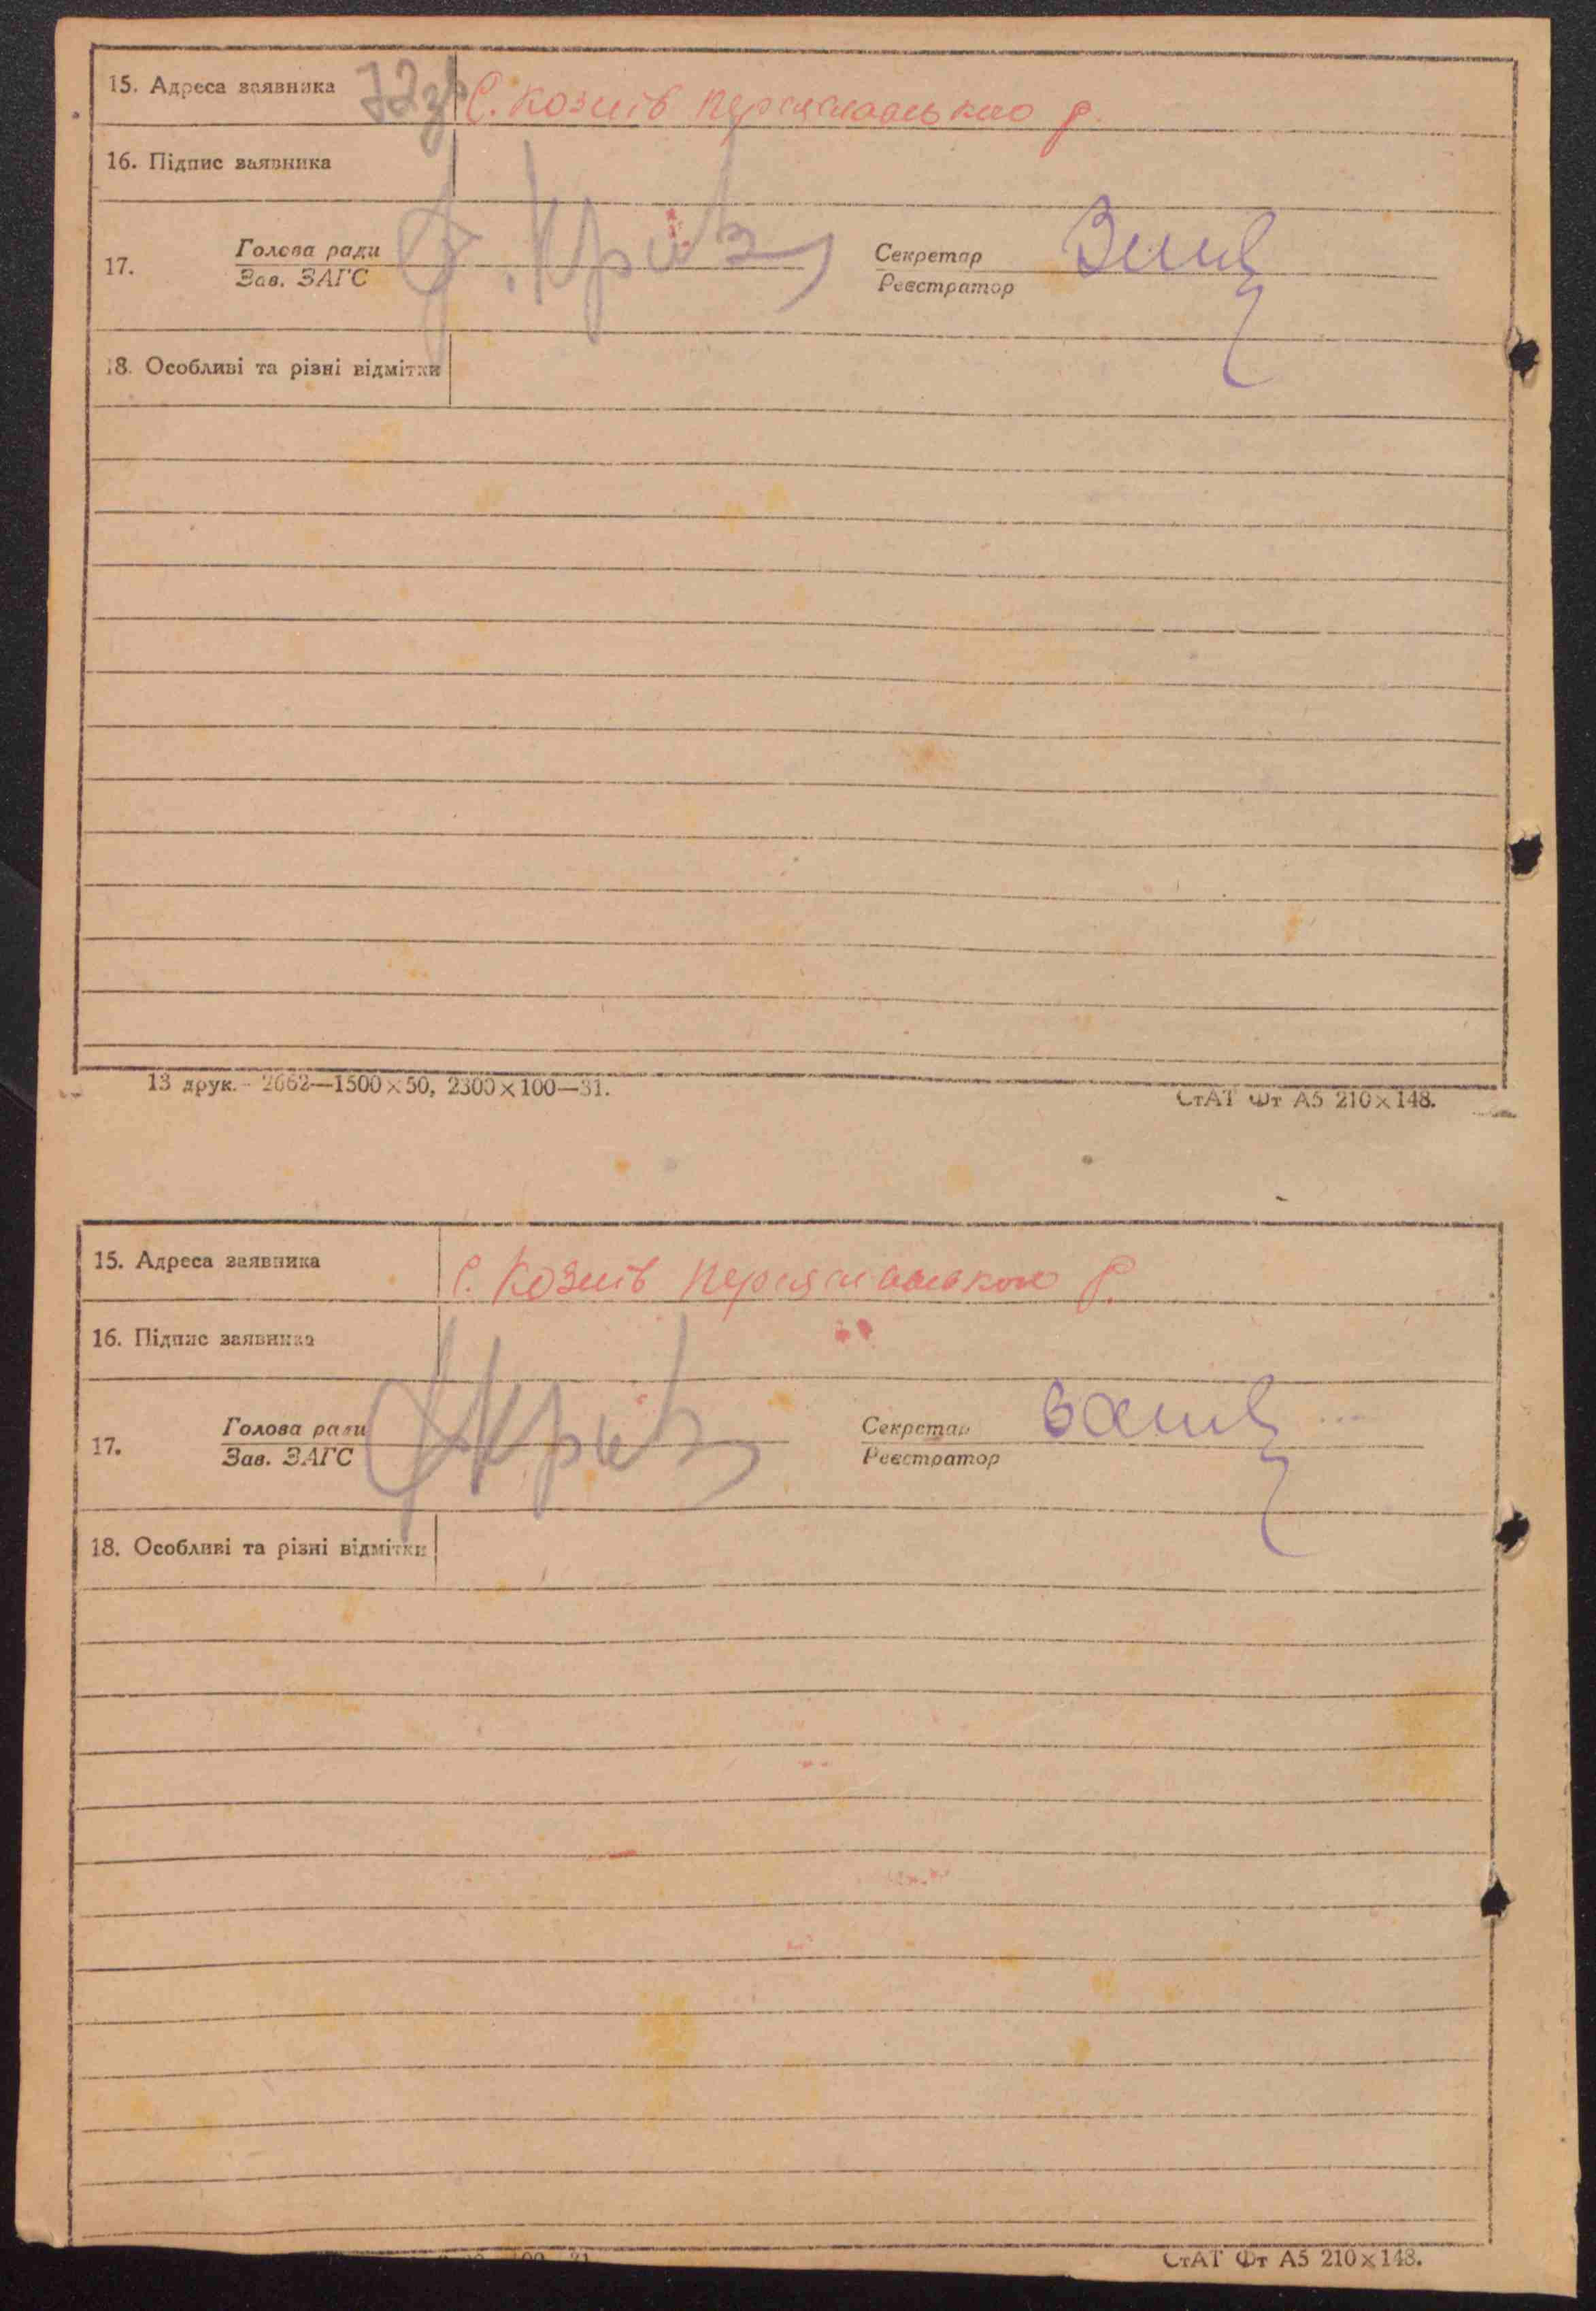 15. Адреса заявника С. Козиів Переяславського р.
16. Підпис заявника
17. Голова ради Секретар
Зав. ЗАГС Реєстратор
18. Особливі та різні відмітки
13 друк. - 2662—1500×50, 2300×100—31.
СтАТ Фт А5 210×148.
15. Адреса заявника С. Козиів Переяславського р.
16. Підпис заявника
17. Голова ради Секретар
Зав. ЗАГС Реєстратор
18. Особливі та різні відмітки
СтАТ Фт А5 210×148.